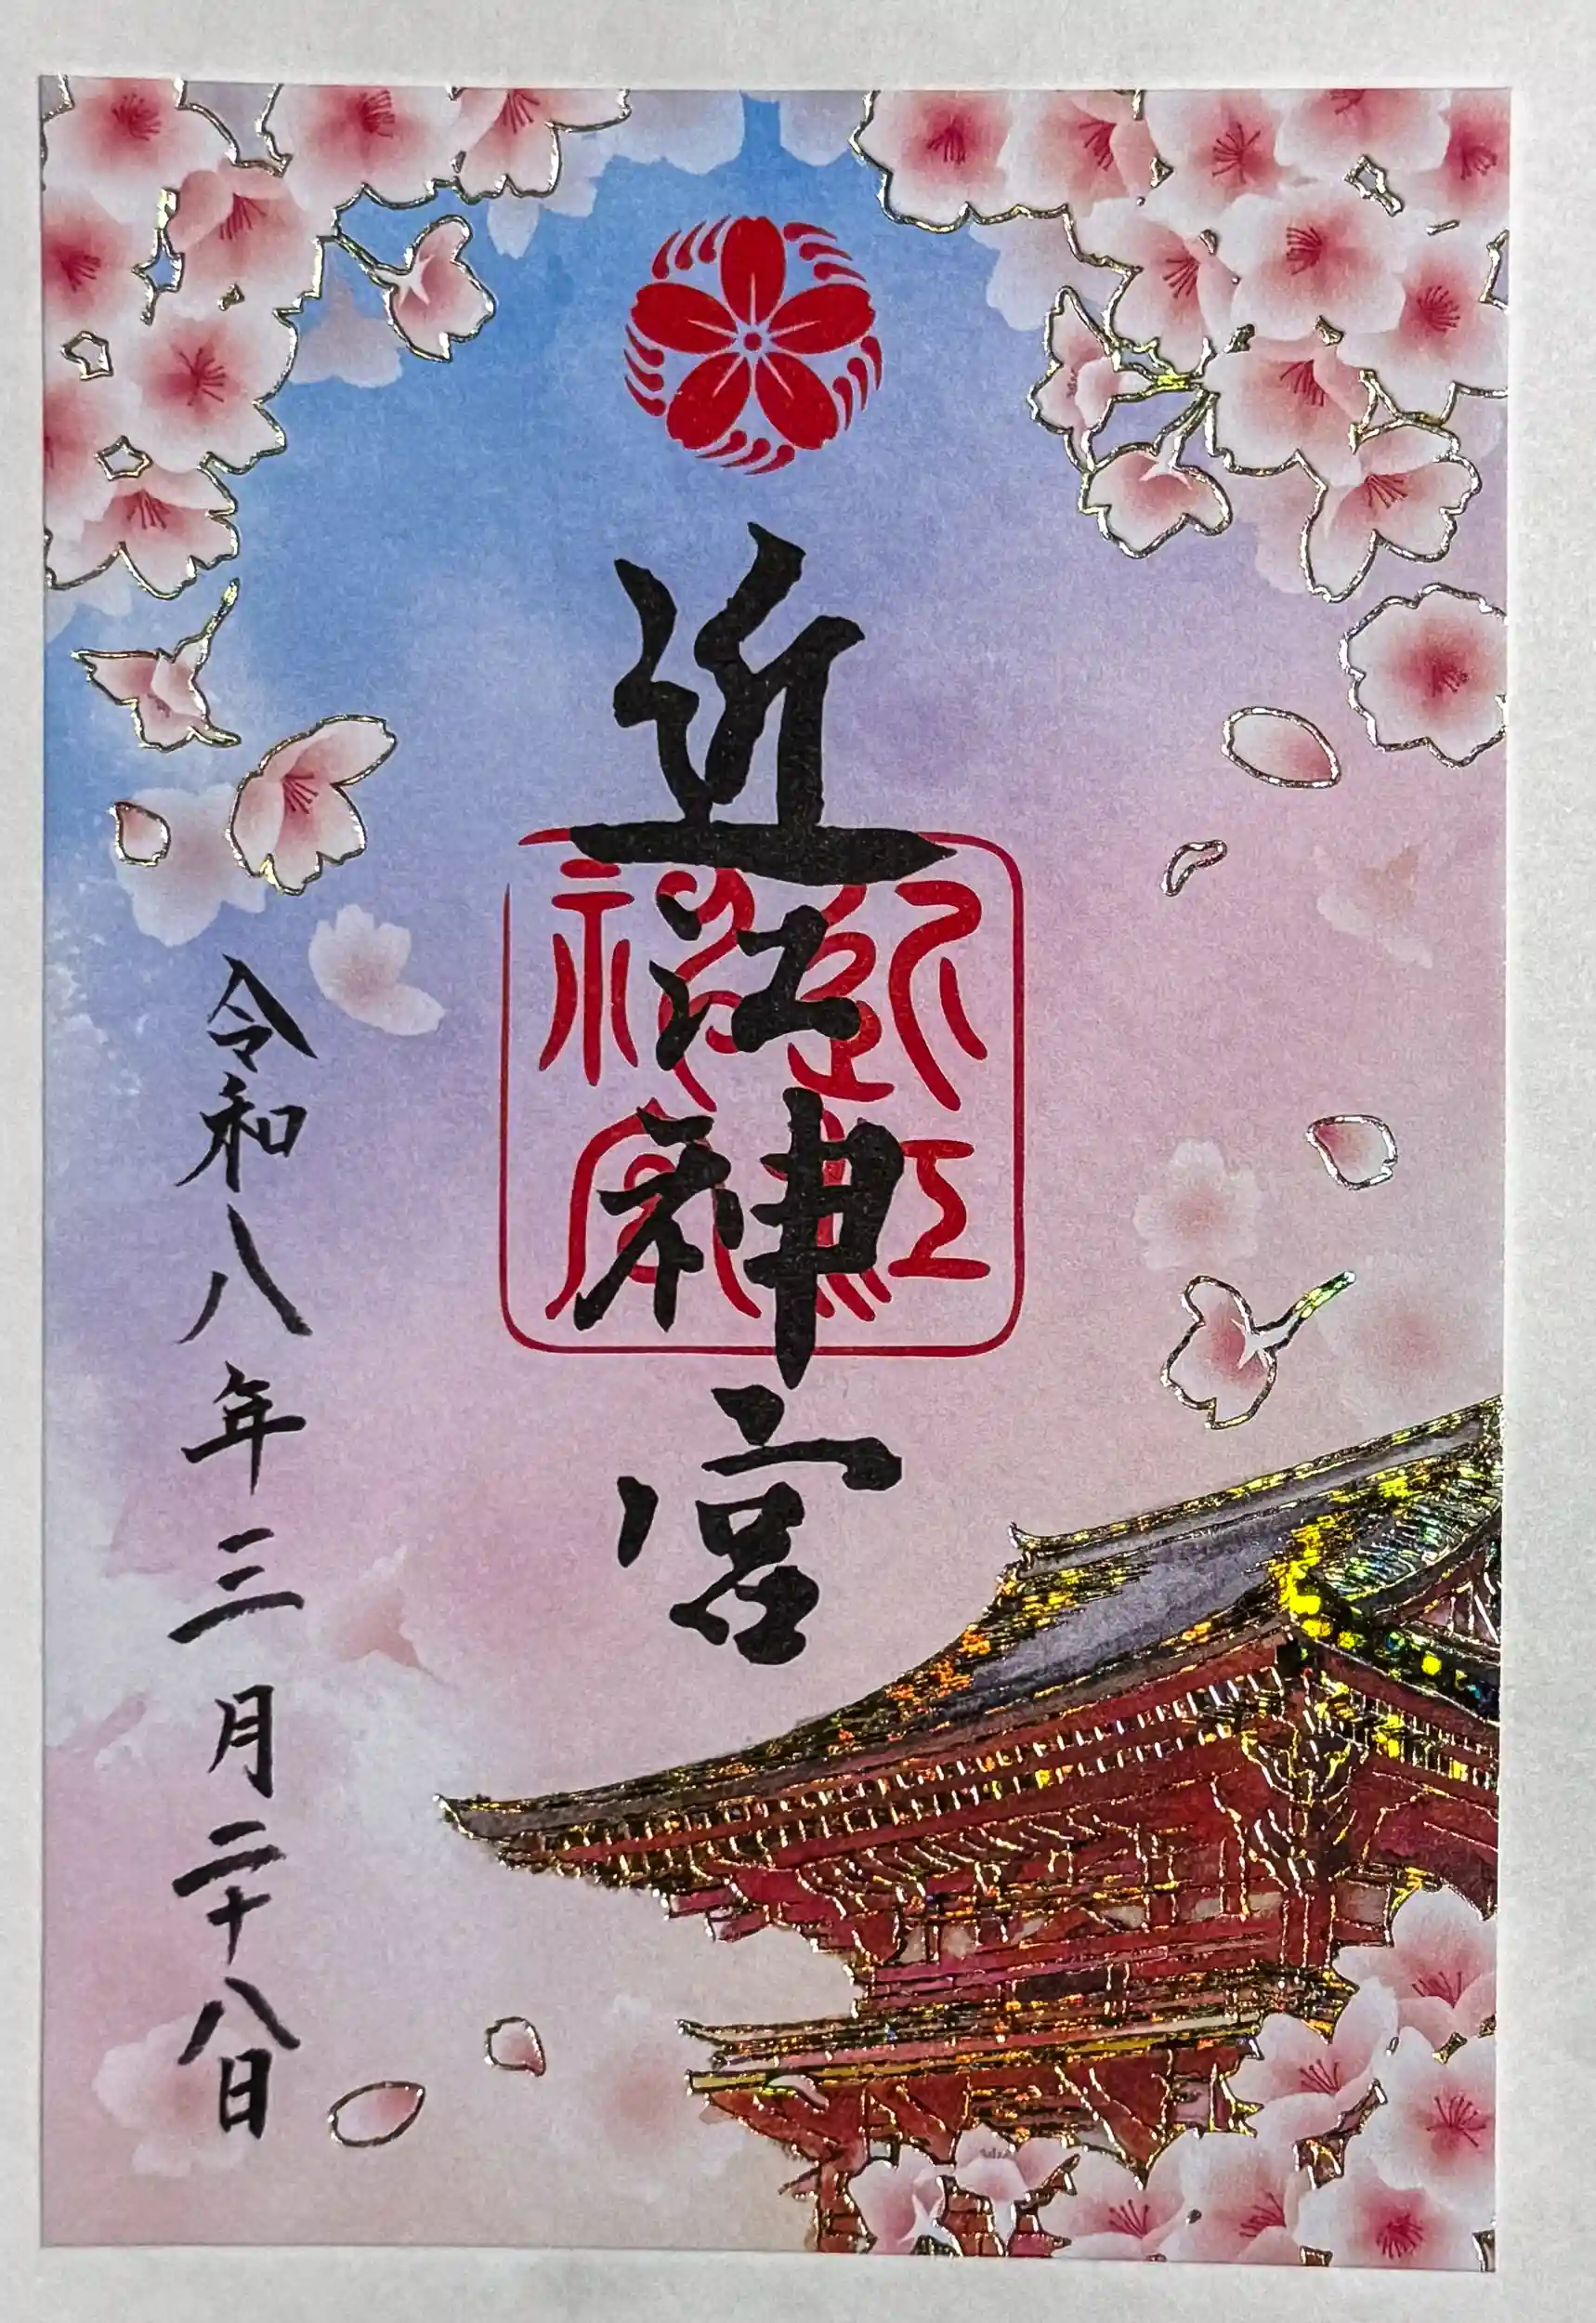 近江神宮
近江神宮
令和八年三月二十八日